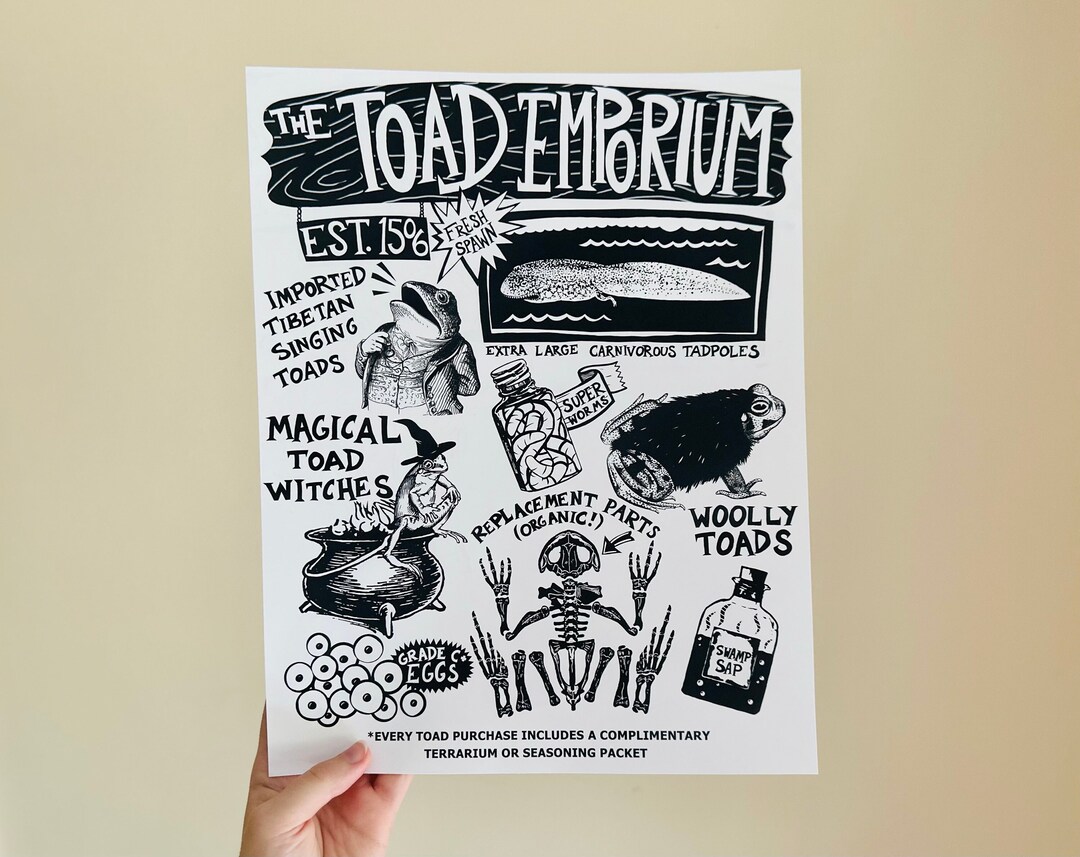 THE TOAD EMPORIUM
EST. 1506
FRESH
SPAWN
IMPORTED
TIBETAN
SINGING
TOADS
EXTRA LARGE CARNIVOROUS TADPOLES
SUPER
WORMS
MAGICAL
TOAD
WITCHES
REPLACEMENT PARTS
(ORGANIC!)
WOOLLY
TOADS
SWAMP
SAP
GRADE C
EGGS
*EVERY TOAD PURCHASE INCLUDES A COMPLIMENTARY
TERRARIUM OR SEASONING PACKET